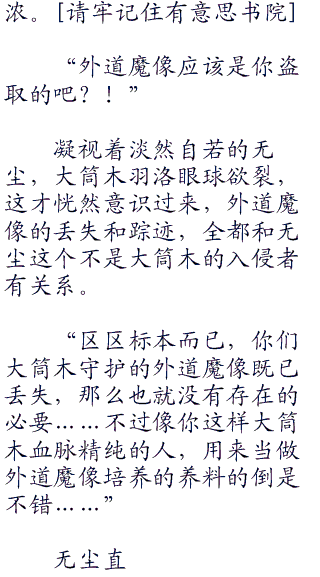 浓。[请牢记住有意思书院]
“外道魔像应该是你盗
取的吧？！”
凝视着淡然自若的无
尘，大筒木羽洛眼球欲裂，
这才恍然意识过来，外道魔
像的丢失和踪迹，全都和无
尘这个不是大筒木的入侵者
有关系。
“区区标本而已，你们
大筒木守护的外道魔像既已
丢失，那么也就没有存在的
必要……不过像你这样大筒
木血脉精纯的人，用来当做
外道魔像培养的养料的倒是
不错……”
无尘直